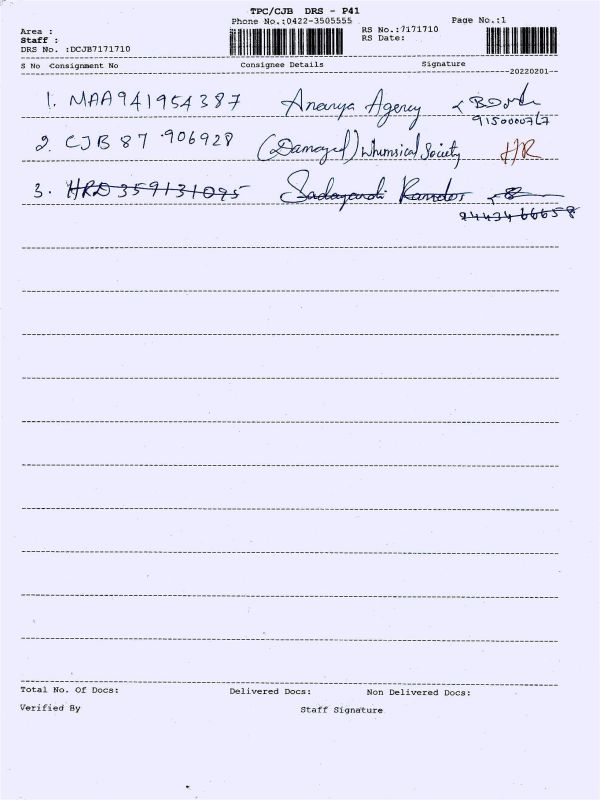 TPC/CJB DRS - P41
Phone No.:0422-3505555 Page No.:1
Area :
Staff :
DRS No. :DCJB7171710
RS No.:7171710
RS Date:
S No Consignment No Consignee Details Signature
20220201
1. MAA941954387 Ananya Agency
9150000767
2. CJB 87 906928 (Damaged) Whimsical Society HR
3. HRD359131095
9443466658
Total No. Of Docs: Delivered Docs: Non Delivered Docs:
Verified By Staff Signature